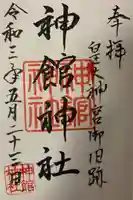 奉拝
皇大神宮御旧跡
神館神社
令和三年五月二十二日